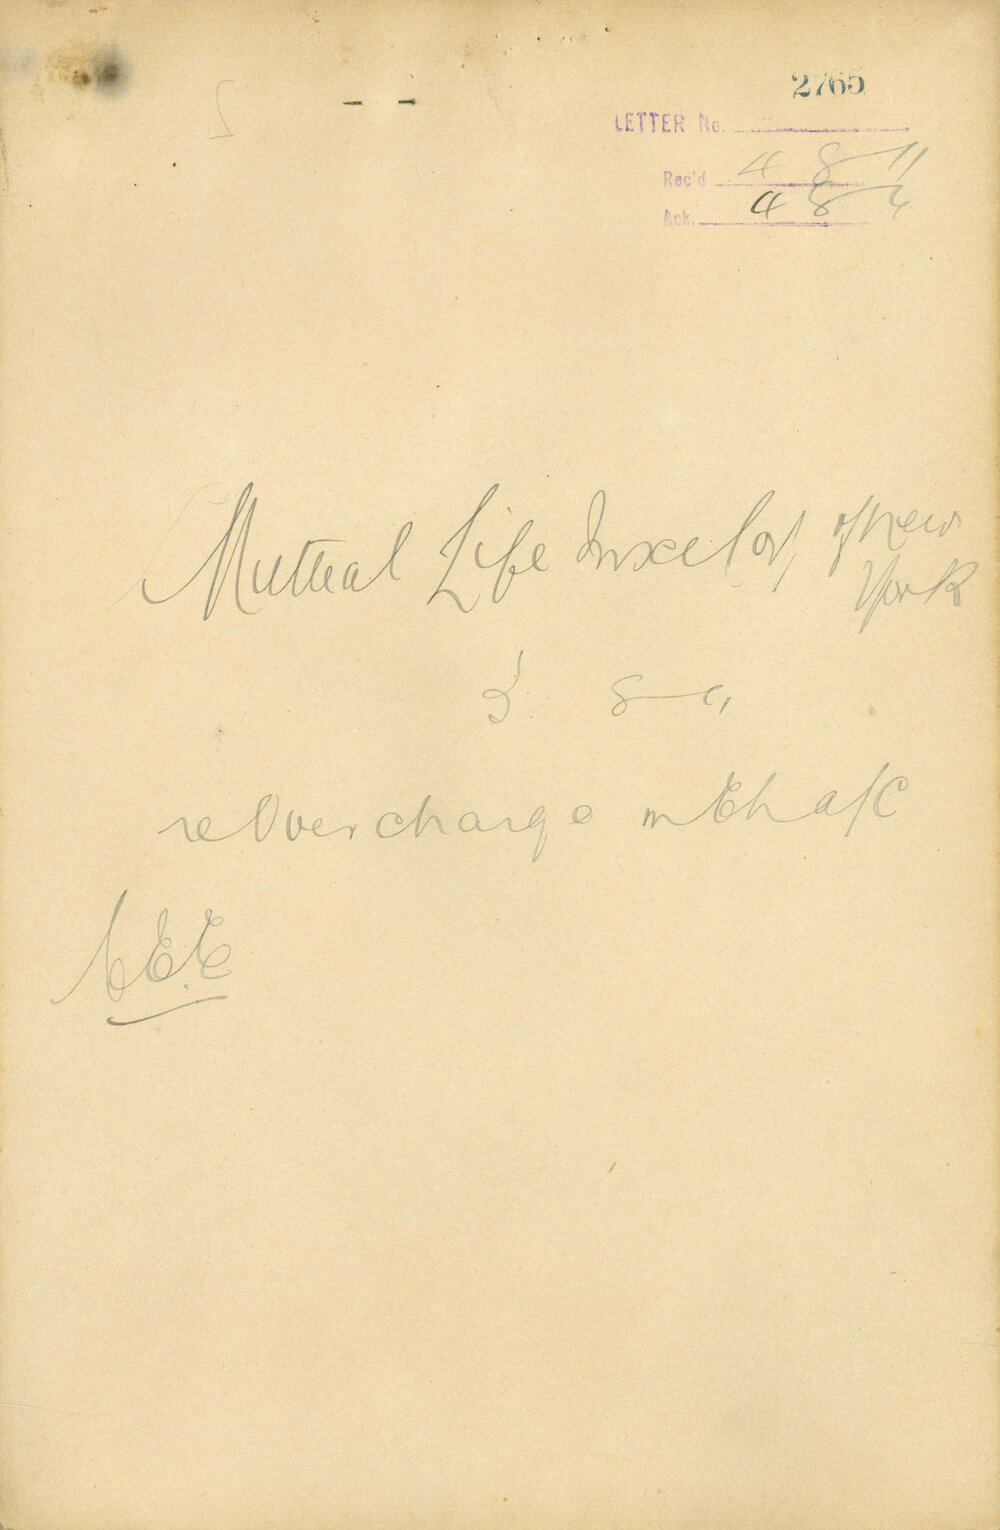 2765
LETTER No.
Rec'd 4 8 11
Ack. 4 8
Mutual Life Insce Co, of New
York
3 8 11
re Overcharge in a/c